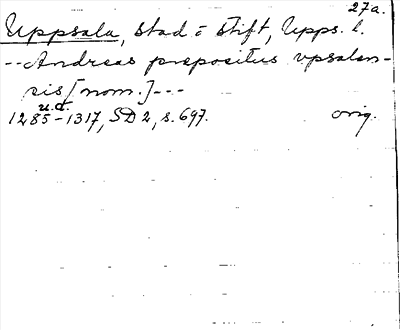 27a.
Uppsala, stad o stift, Upps. l.
--Andreas præpositus vpsalen-
sis [nom.]---
u.d.
1285-1317, SD 2, s. 697. orig.